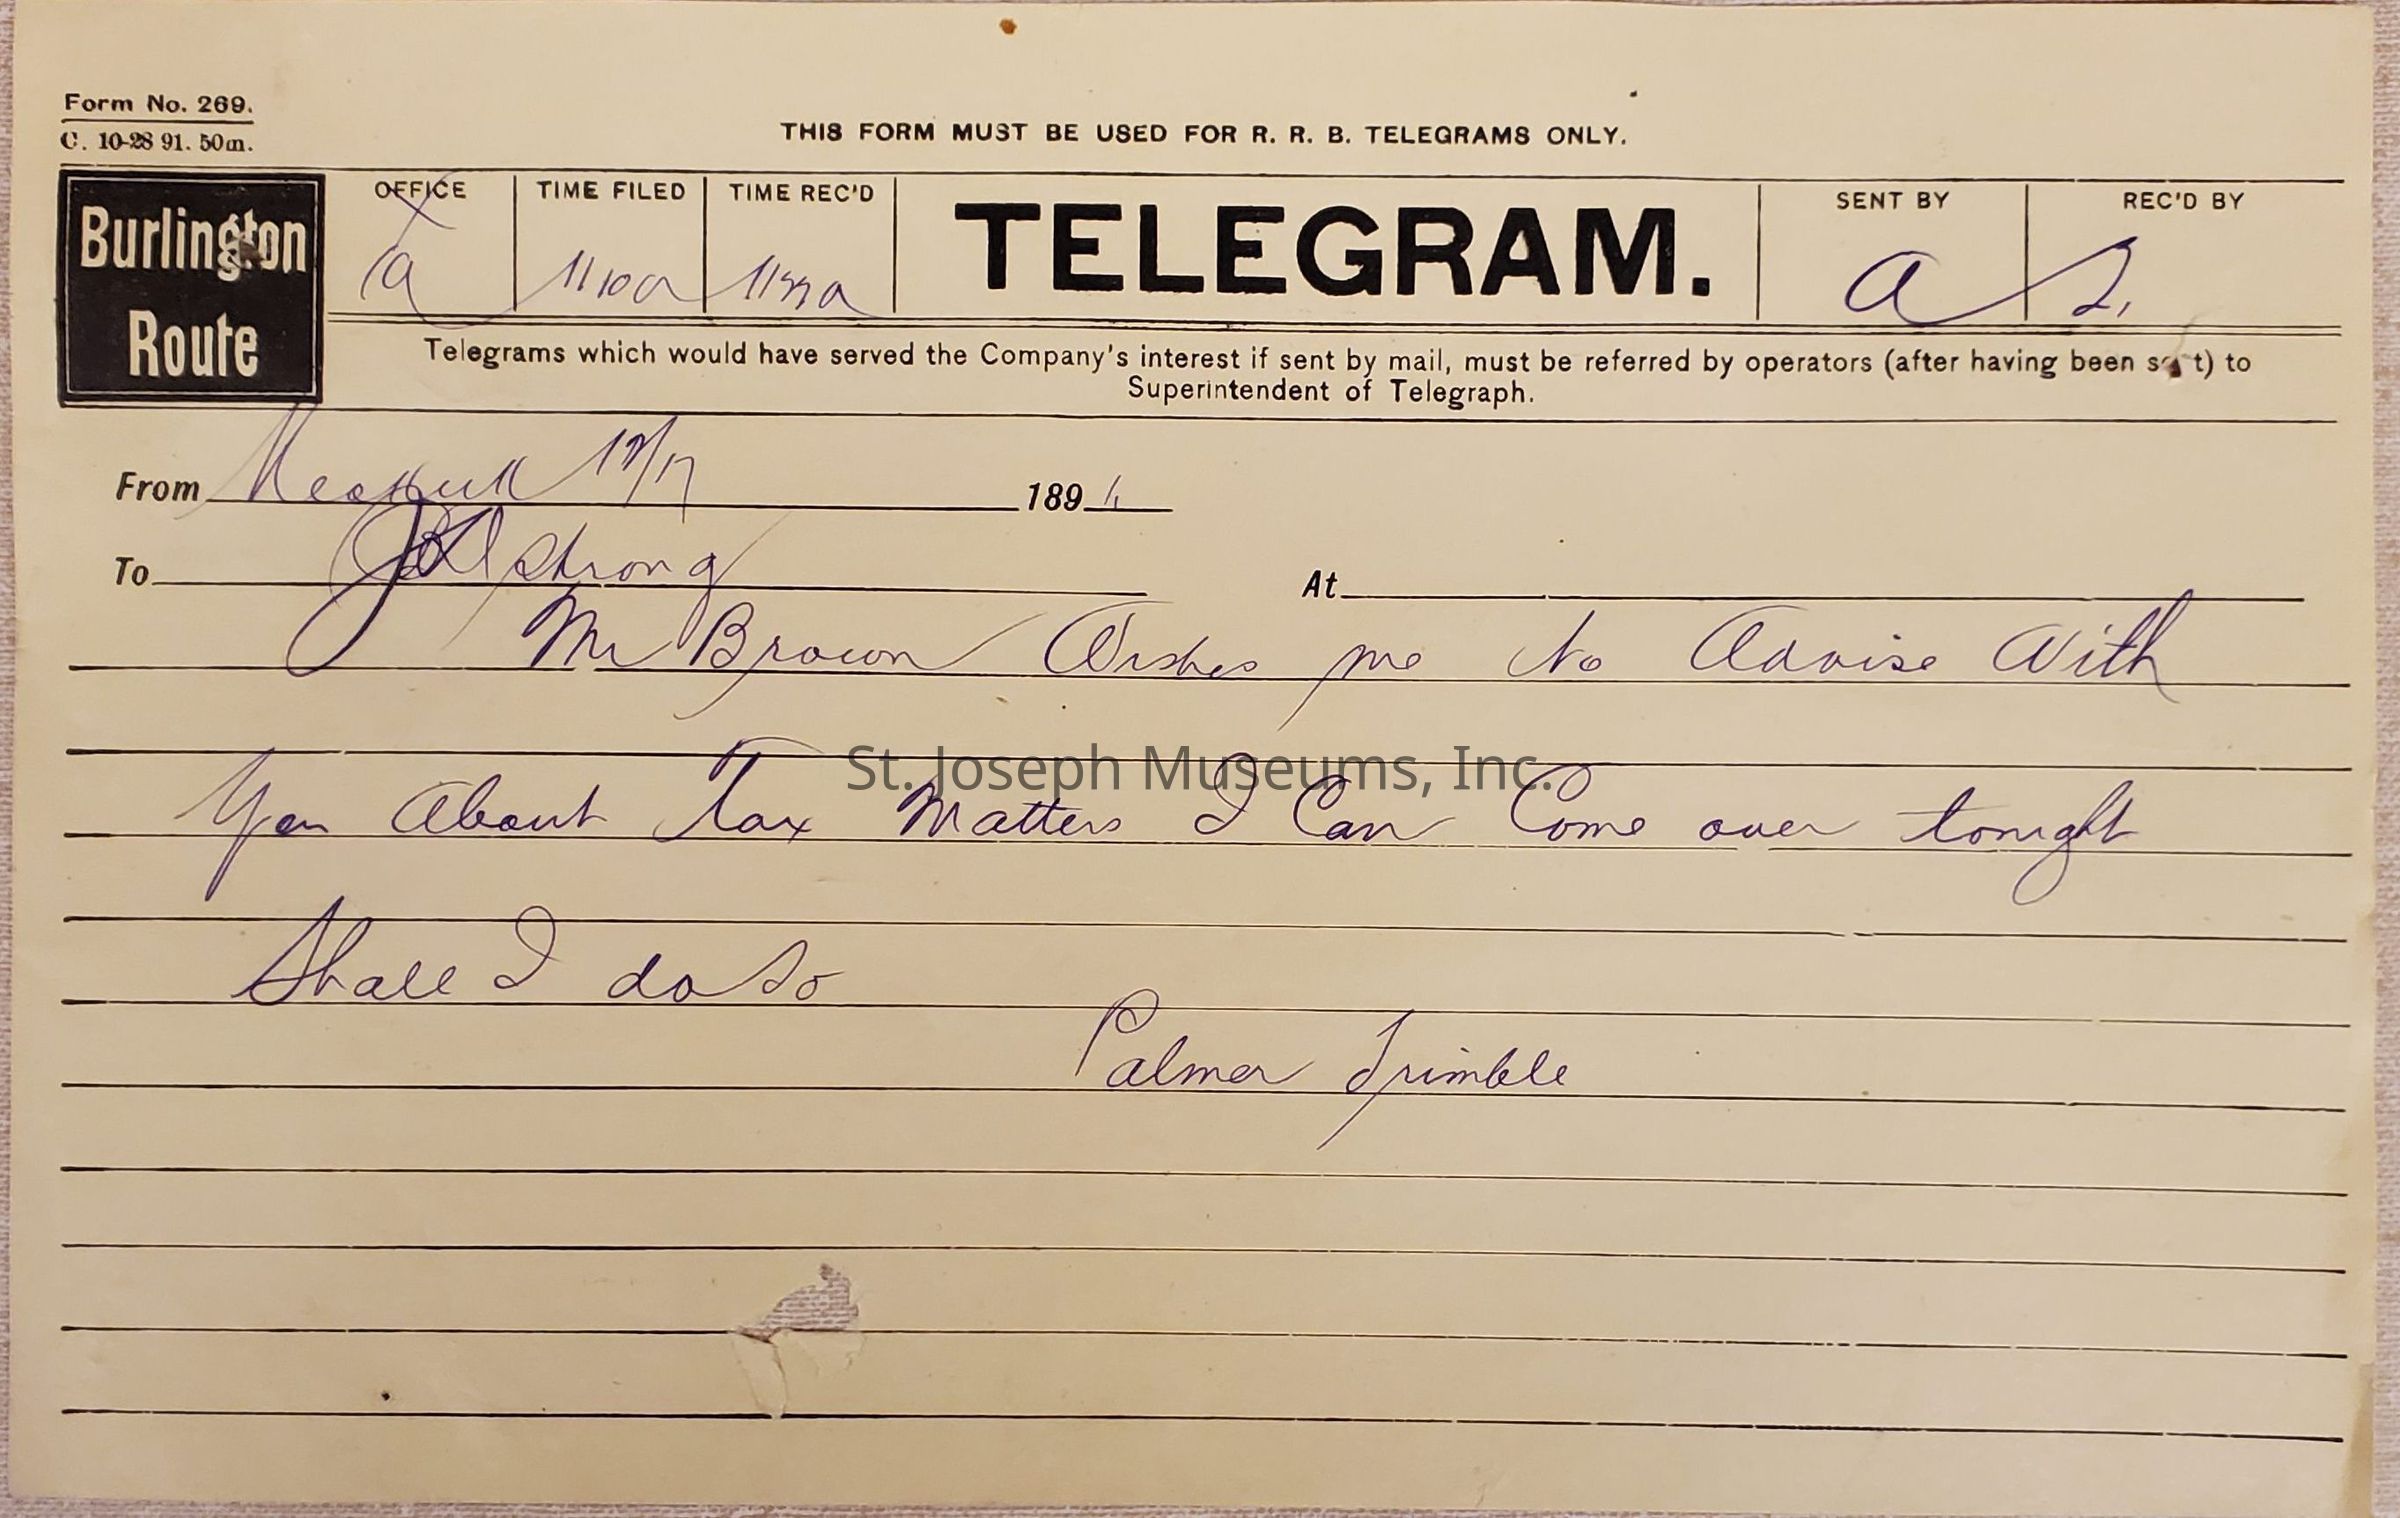 Form No. 269.
C. 10-28 91. 50m.
THIS FORM MUST BE USED FOR R. R. B. TELEGRAMS ONLY.
Burlington Route
OFFICE TIME FILED TIME REC'D TELEGRAM. SENT BY REC'D BY
a 1110a a S.
Telegrams which would have served the Company's interest if sent by mail, must be referred by operators (after having been s t) to
Superintendent of Telegraph.
From 12/17 1891
To Strong At
Mr Brown Wishes me to Advise With
You About Tax Matters I Can Come over tonight
St. Joseph Museums, Inc.
Shall I do so
Palmer Trimble